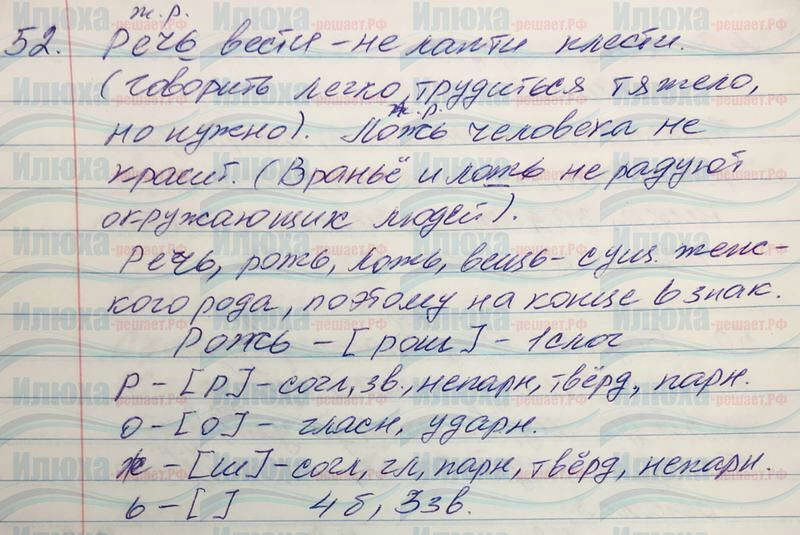 ж.р.
52. Речь вести - не лапти плести.
(Говорить легко, трудиться тяжело,
ж.р.
но нужно). Ложь человека не
красит. (Враньё и ложь не радуют
окружающих людей).
Речь, рожь, ложь, вещь - сущ. женс-
кого рода, поэтому на конце ь знак.
Рожь - [рош] - 1 слог
р - [р] - согл, зв., непарн, твёрд, парн.
о - [о] - гласн, ударн.
ж - [ш] - согл, гл, парн, твёрд, непарн.
ь - [ ] 4 б, 3 зв.
Илюха-решает.РФ